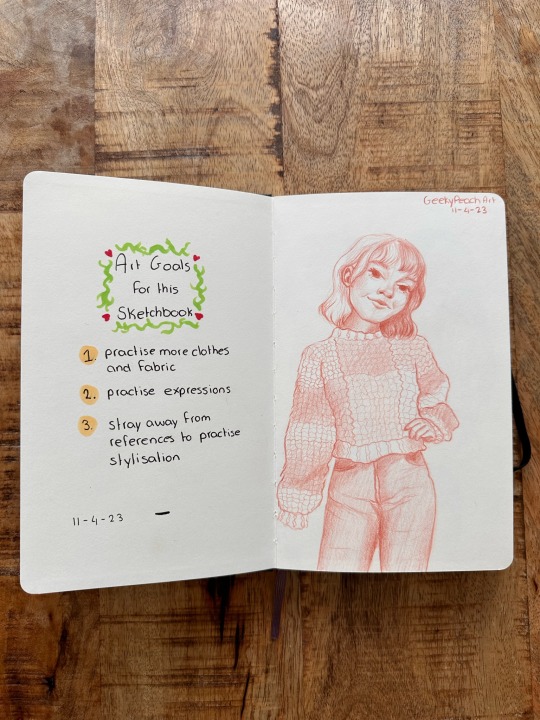 Art Goals
for this
Sketchbook
1. practise more clothes
and fabric
2. practise expressions
3. stray away from
references to practise
stylisation
11-4-23
GeekyPeachArt
11-4-23